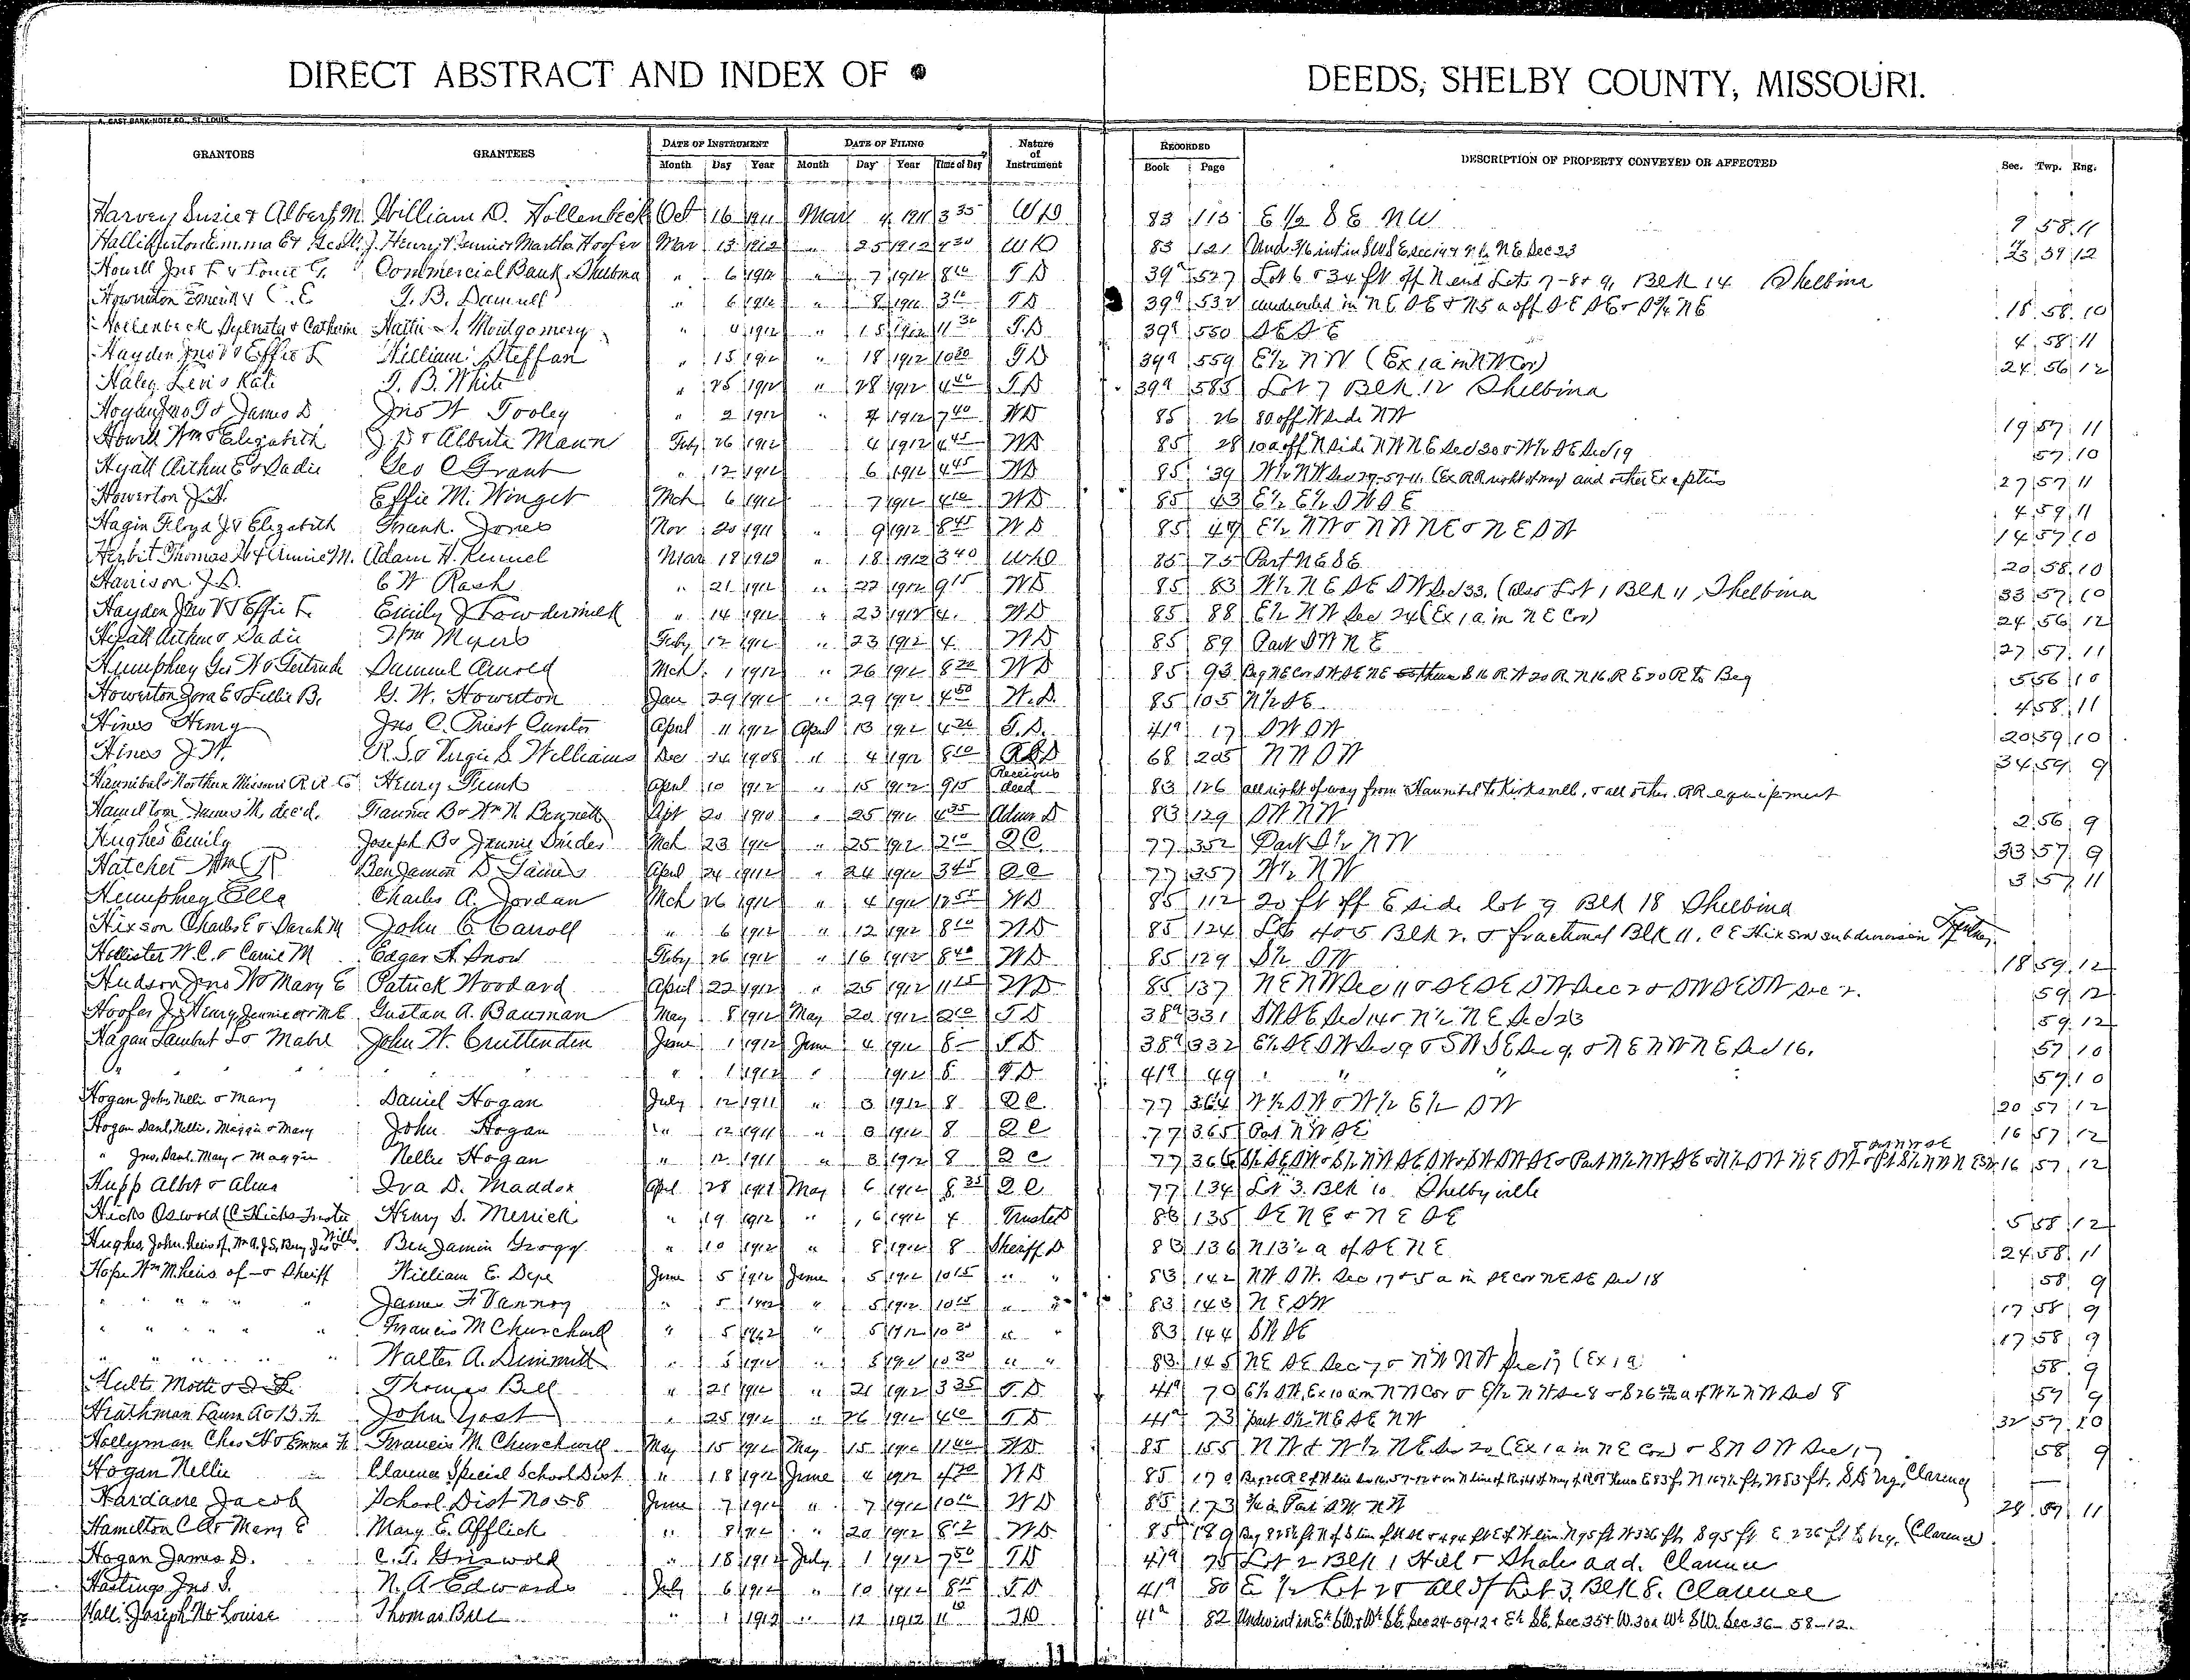 DIRECT ABSTRACT AND INDEX OF DEEDS, SHELBY COUNTY, MISSOURI.
GRANTORS GRANTEES DATE OF INSTRUMENT DATE OF FILING Nature of Instrument RECORDED DESCRIPTION OF PROPERTY CONVEYED OR AFFECTED Sec. Twp. Rng.
Month Day Year Month Day Year Time of Day Book Page
Harvey Susie & Albert M. William D. Hollenbeck Oct 16 1911 Mar 4 1911 3 35 WD 83 115 E 1/2 SE NW 9 58 11
J. Henry & Jennie & Martha Hoofer Mar 13 1912 " 25 1912 4 30 WD 83 121 Und 3/6 int in SWSE sec 14 & N 1/2 NE Sec 23 59 12
Howell Jno F & Louie G. Commercial Bank, Shelbina " 6 1912 " 7 1912 8 10 TD 39a 527 Lot 6 & 34 ft off N end Lots 7-8 & 9, Blk 14 Shelbina
Howerton C.E " 6 1912 " 8 1912 3 10 TD 39a 532 15 58 10
Hollenbeck Sylvester & Catherine Hattie S. Montgomery " 4 1912 " 15 1912 11 30 T.D 39a 550 SE SE 4 58 11
Hayden Jno V & Effie F. William Steffan " 15 1912 " 18 1912 10 20 TD 39a 559 E 1/2 NW (Ex 1a in NW Cor) 24 56 12
Haley Levi & Kate T. B. White " 25 1912 " 28 1912 4 40 T.D 39a 585 Lot 7 Blk 12 Shelbina
Hogan Jno T & James D Jno W Tooley " 2 1912 " 4 1912 7 40 WD 85 26 80 off W side NW 19 57 11
Howell Wm & Elizabeth J D & Alberta Mann Feby 26 1912 4 1912 4 45 WD 85 28 10a off N side NW NE Sec 30 & W 1/2 SE Sec 19 57 10
Hyatt Arthur E & Sadie Geo C Grant " 12 1912 6 1912 4 45 WD 85 39 W 1/2 NW Sec 27-57-11. (Ex RR right of way) and other Exceptions 27 57 11
Howerton J.H. Effie M. Winget Mch 6 1912 7 1912 4 10 WD 85 43 E 1/2 E 1/2 SW SE 4 59 11
Hagin Floyd J & Elizabeth Frank Jones Nov 20 1911 9 1912 8 45 WD 85 47 E 1/2 NW & NW NE & NE SW 14 57 10
Thomas W & Annie M. Adam H. Kunnel Mar 18 1912 " 18 1912 3 40 WD 85 75 Part NE SE 20 58 10
Harrison J.D. C W Rash " 21 1912 " 22 1912 9 15 WD 85 83 W 1/2 NE SE SW Sec 33. (also Lot 1 Blk 11, Shelbina 33 57 10
Hayden Jno V & Effie F. Emily J Lowdermilk " 14 1912 " 23 1912 4. WD 85 88 E 1/2 NW Sec 24 (Ex 1a in NE Cor) 24 56 12
Hyatt Arthur & Sadie Wm Myers Feby 12 1912 " 23 1912 4 WD 85 89 Part SW NE 27 57 11
Humphrey Geo W & Gertrude Samuel Arnold Mch 1 1912 " 26 1912 8 20 WD 85 93 Beg NE Cor SW SE NE thence S 16 R W 20 R N 16 R E 20 R to Beg 5 56 10
Howerton Zora E & Lillie B. G. W. Howerton Jan 29 1912 " 29 1912 4 50 W.D. 85 105 N 1/2 SE 4 58 11
Hines Henry Jno C. Priest Curator April 11 1912 April 13 1912 4 20 T.D. 41a 17 SW SW 20 59 10
Hines J.W. R.S. & Virgie S. Williams Dec 26 1908 " 4 1912 8 10 68 205 NW SW 34 59 9
Hannibal & Northern Missouri R.R. Co Henry Funk April 10 1912 " 15 1912 9 15 Receivers deed 83 126 all right of way from Hannibal to Kirksville, & all other RR equipment
Hamilton James M, dec'd. Frannie B & Wm N. Bennett 20 1910 " 25 1912 4 35 Admr D 83 129 SW NW 2 56 9
Hughes Emily Joseph B & Jennie Snider Mch 23 1912 " 25 1912 2 10 QC 77 352 Part S 1/2 NW 33 57 9
Hatcher Wm R Benjamin D. Gaines April 24 1912 " 24 1912 3 45 QC 77 357 W 1/2 NW 3 57 11
Humphrey Ella Charles A. Jordan Mch 26 1912 " 4 1912 12 55 WD 85 112 20 ft off E side lot 9 Blk 18 Shelbina
Hixson Charles E & Sarah M John C Carroll " 6 1912 " 12 1912 8 10 WD 85 124 Lots 4 & 5 Blk 2. & fractional Blk 11. C E Hixson subdivision
Hollister W.C. & Carrie M Edgar H. Snow Feby 26 1912 " 16 1912 8 40 WD 85 129 S 1/2 SW 18 59 12
Hudson Jno W & Mary E Patrick Woodard April 22 1912 " 25 1912 11 15 WD 85 137 NE NW Sec 11 & SE SE SW Sec 2 & SW SE SW Sec 2. 59 12
Hoofer J. Henry, Jennie & M E Gustan A. Bauman May 8 1912 May 20 1912 2 10 TD 38a 331 SW SE Sec 14 & N 1/2 NE Sec 23 59 12
Hagan Lambert L & Mabel John W. Cruttenden June 1 1912 June 4 1912 8 TD 38a 332 E 1/2 SE SW Sec 9 & SW SE Sec 9, & NE NW NE Sec 16. 57 10
" " " " " 1 1912 " 1912 8 TD 41a 49 " " " 57 10
Hogan John, Nellie & Mary Daniel Hogan July 12 1911 " 3 1912 8 QC 77 364 W 1/2 SW & W 1/2 E 1/2 SW 20 57 12
Hogan Danl, Nellie, Maggie & Mary John Hogan " 12 1911 " 3 1912 8 QC 77 365 Part NW SE 16 57 12
" Jno, Danl, May & Maggie Nellie Hogan " 12 1911 " 3 1912 8 QC 77 366 16 57 12
Hupp Albert & Alma Iva D. Maddox Apl 28 1912 May 6 1912 8 35 QC 77 134 Lot 3 Blk 10 Shelbyville
Hicks Oswold (C Hicks Trustee Henry S. Merrick " 19 1912 " 6 1912 4 Trustee D 83 135 SE NE & NE SE 5 58 12
Hughes, John, heirs of, Benjamin Grogg " 10 1912 " 8 1912 8 Sheriff D 83 136 N 13 1/2 a of SE NE 24 58 11
Hope Wm M. heirs of & Sheriff William E. Dye June 5 1912 June 5 1912 10 15 " " 83 142 NW SW. Sec 17 & 5 a in SE cor NE SE Sec 18 58 9
" " " " " James F Vannoy " 5 1912 " 5 1912 10 15 " " 83 143 NE SW 17 58 9
" " " " " Francis M Churchwell " 5 1912 " 5 1912 10 30 " " 83 144 SW SE 17 58 9
" " " " " Walter A. Dimmitt " 5 1912 " 5 1912 10 30 " " 83 145 NE SE Sec 7 & NW NW Sec 17 (Ex 1a 58 9
Thomas Bell " 21 1912 " 21 1912 3 35 T.D. 41a 70 57 9
Heathman Laura A & B. F. John Yost " 25 1912 " 26 1912 4 10 TD 41a 73 part S 1/2 NE SE NW 32 57 10
Hollyman Chas H & Emma F. Francis M. Churchwell May 15 1912 May 15 1912 11 40 WD 85 155 NW & W 1/2 NE Sec 20 (Ex 1a in NE Cor) & SW SW Sec 17 58 9
Hogan Nellie Clarence Special School Dist " 18 1912 June 4 1912 4 20 WD 85 170 Clarence
Hardane Jacob School Dist No 58 June 7 1912 " 7 1912 10 10 WD 85 173 Part SW NW 28 59 11
Hamilton C A & Mary E Mary E. Afflick " 8 1912 " 20 1912 8 12 WD 85 189 (Clarence)
Hogan James D. C. T. Griswold " 18 1912 July 1 1912 7 50 TD 41a 75 Lot 2 Blk 1 Hill & Shale add. Clarence
Hastings Jno S. N. A. Edwards July 6 1912 " 10 1912 8 15 TD 41a 80 E 1/2 Lot 2 & all of Lot 3, Blk 8. Clarence
Hall Joseph N & Louise Thomas Bell " 1 1912 " 12 1912 11 10 TD 41a 82 Sec 24-59-12 & E 1/2 SE. Sec 35 & W. 30a W 1/2 SW. Sec 36-58-12.